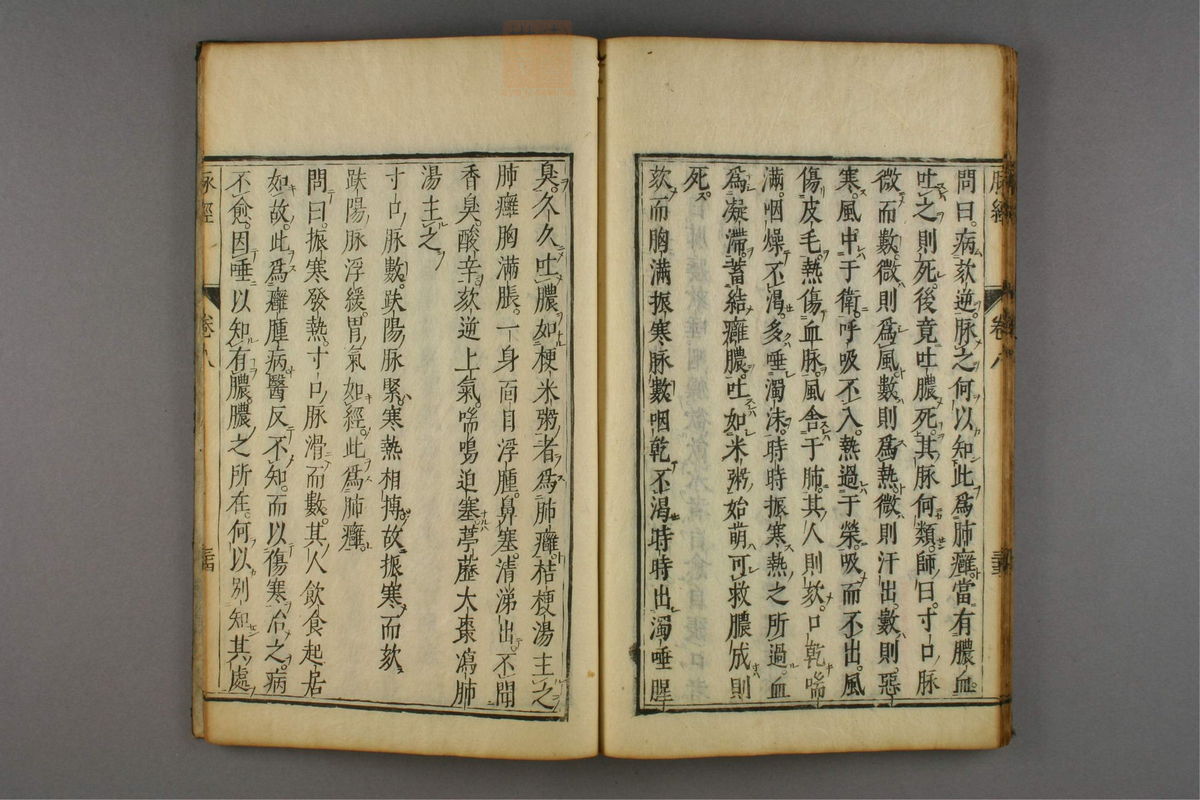 問曰。病欬逆。脉之何以知此爲肺癰。當有膿血
吐之則死。後竟吐膿死。其脉何類。師曰。寸口脉
微而數。微則爲風。數則爲熱。微則汗出。數則惡
寒。風中于衛。呼吸不入。熱過于榮。吸而不出。風
傷皮毛。熱傷血脉。風舎于肺。其人則欬。口乾喘
滿。咽燥不渇。多唾濁沫。時時振寒。熱之所過。血
爲凝滯。蓄結癰膿。吐如米粥。始萌可救。膿成則
死。
欬而胸滿振寒脉數。咽乾不渇。時時出濁唾腥
臭。久久吐膿如梗米粥者。爲肺癰。桔梗湯主之
肺癰胸滿脹。一身面目浮腫。鼻塞。清涕出。不聞
香臭。酸辛。欬逆上氣。喘鳴迫塞。葶藶大棗瀉肺
湯主之
寸口脉數。趺陽脉緊。寒熱相搏。故振寒而欬。
趺陽脉浮緩。胃氣如經。此爲肺癰。
問曰。振寒發熱。寸口脉滑而數。其人飲食起居
如故。此爲癰腫病。醫反不知。而以傷寒治之。病
不愈。因唾以知有膿。膿之所在。何以別知其處
脉經 卷八